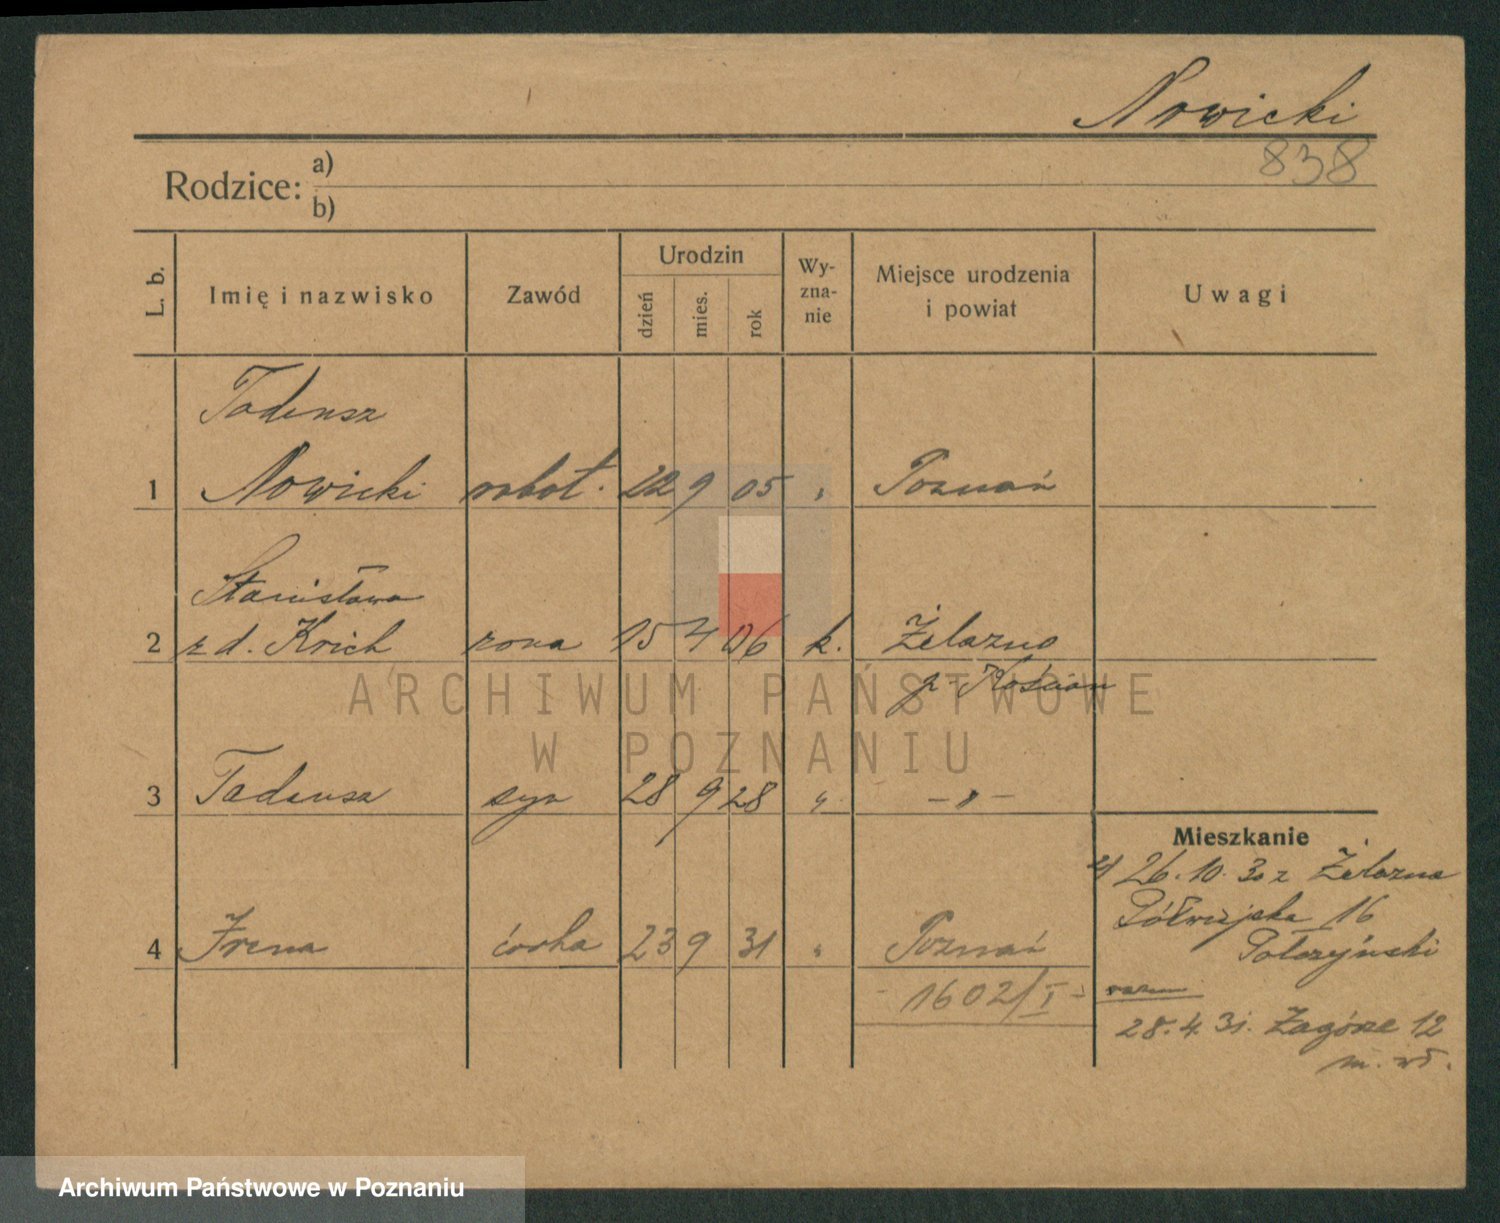 Nowicki
838
Rodzice: a)
b)
L. b.
Imię i nazwisko
Zawód
Urodzin
dzień
mies.
rok
Wy-
zna-
nie
Miejsce urodzenia
i powiat
Uwagi
Tadeusz
1 Nowicki robot. 22 9 05 " Poznań
Stanisława
2 z d. Krich żona 15 4 06 k. Żelazno
p. Kościan
3 Tadeusz syn 28 9 28 " -"-
Mieszkanie
26.10.30 z Żelazna
Półwiejska 16
4 Irena córka 23 9 31 " Poznań
Połczyński
- 1602/I -
razem
28.4.31. Zagórze 12
m. wł.
ARCHIWUM PAŃSTWOWE
W POZNANIU
Archiwum Państwowe w Poznaniu